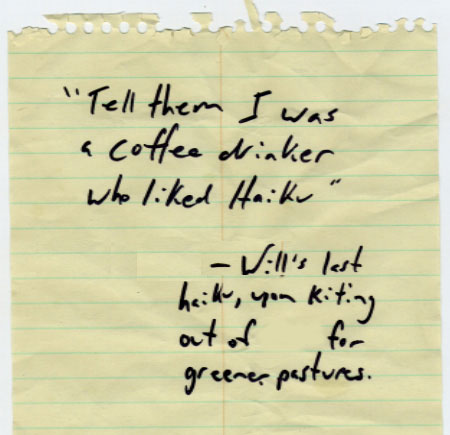 "Tell them I was
a coffee drinker
who liked Haiku"
- Will's last
haiku, upon kiting
out of for
greener pastures.